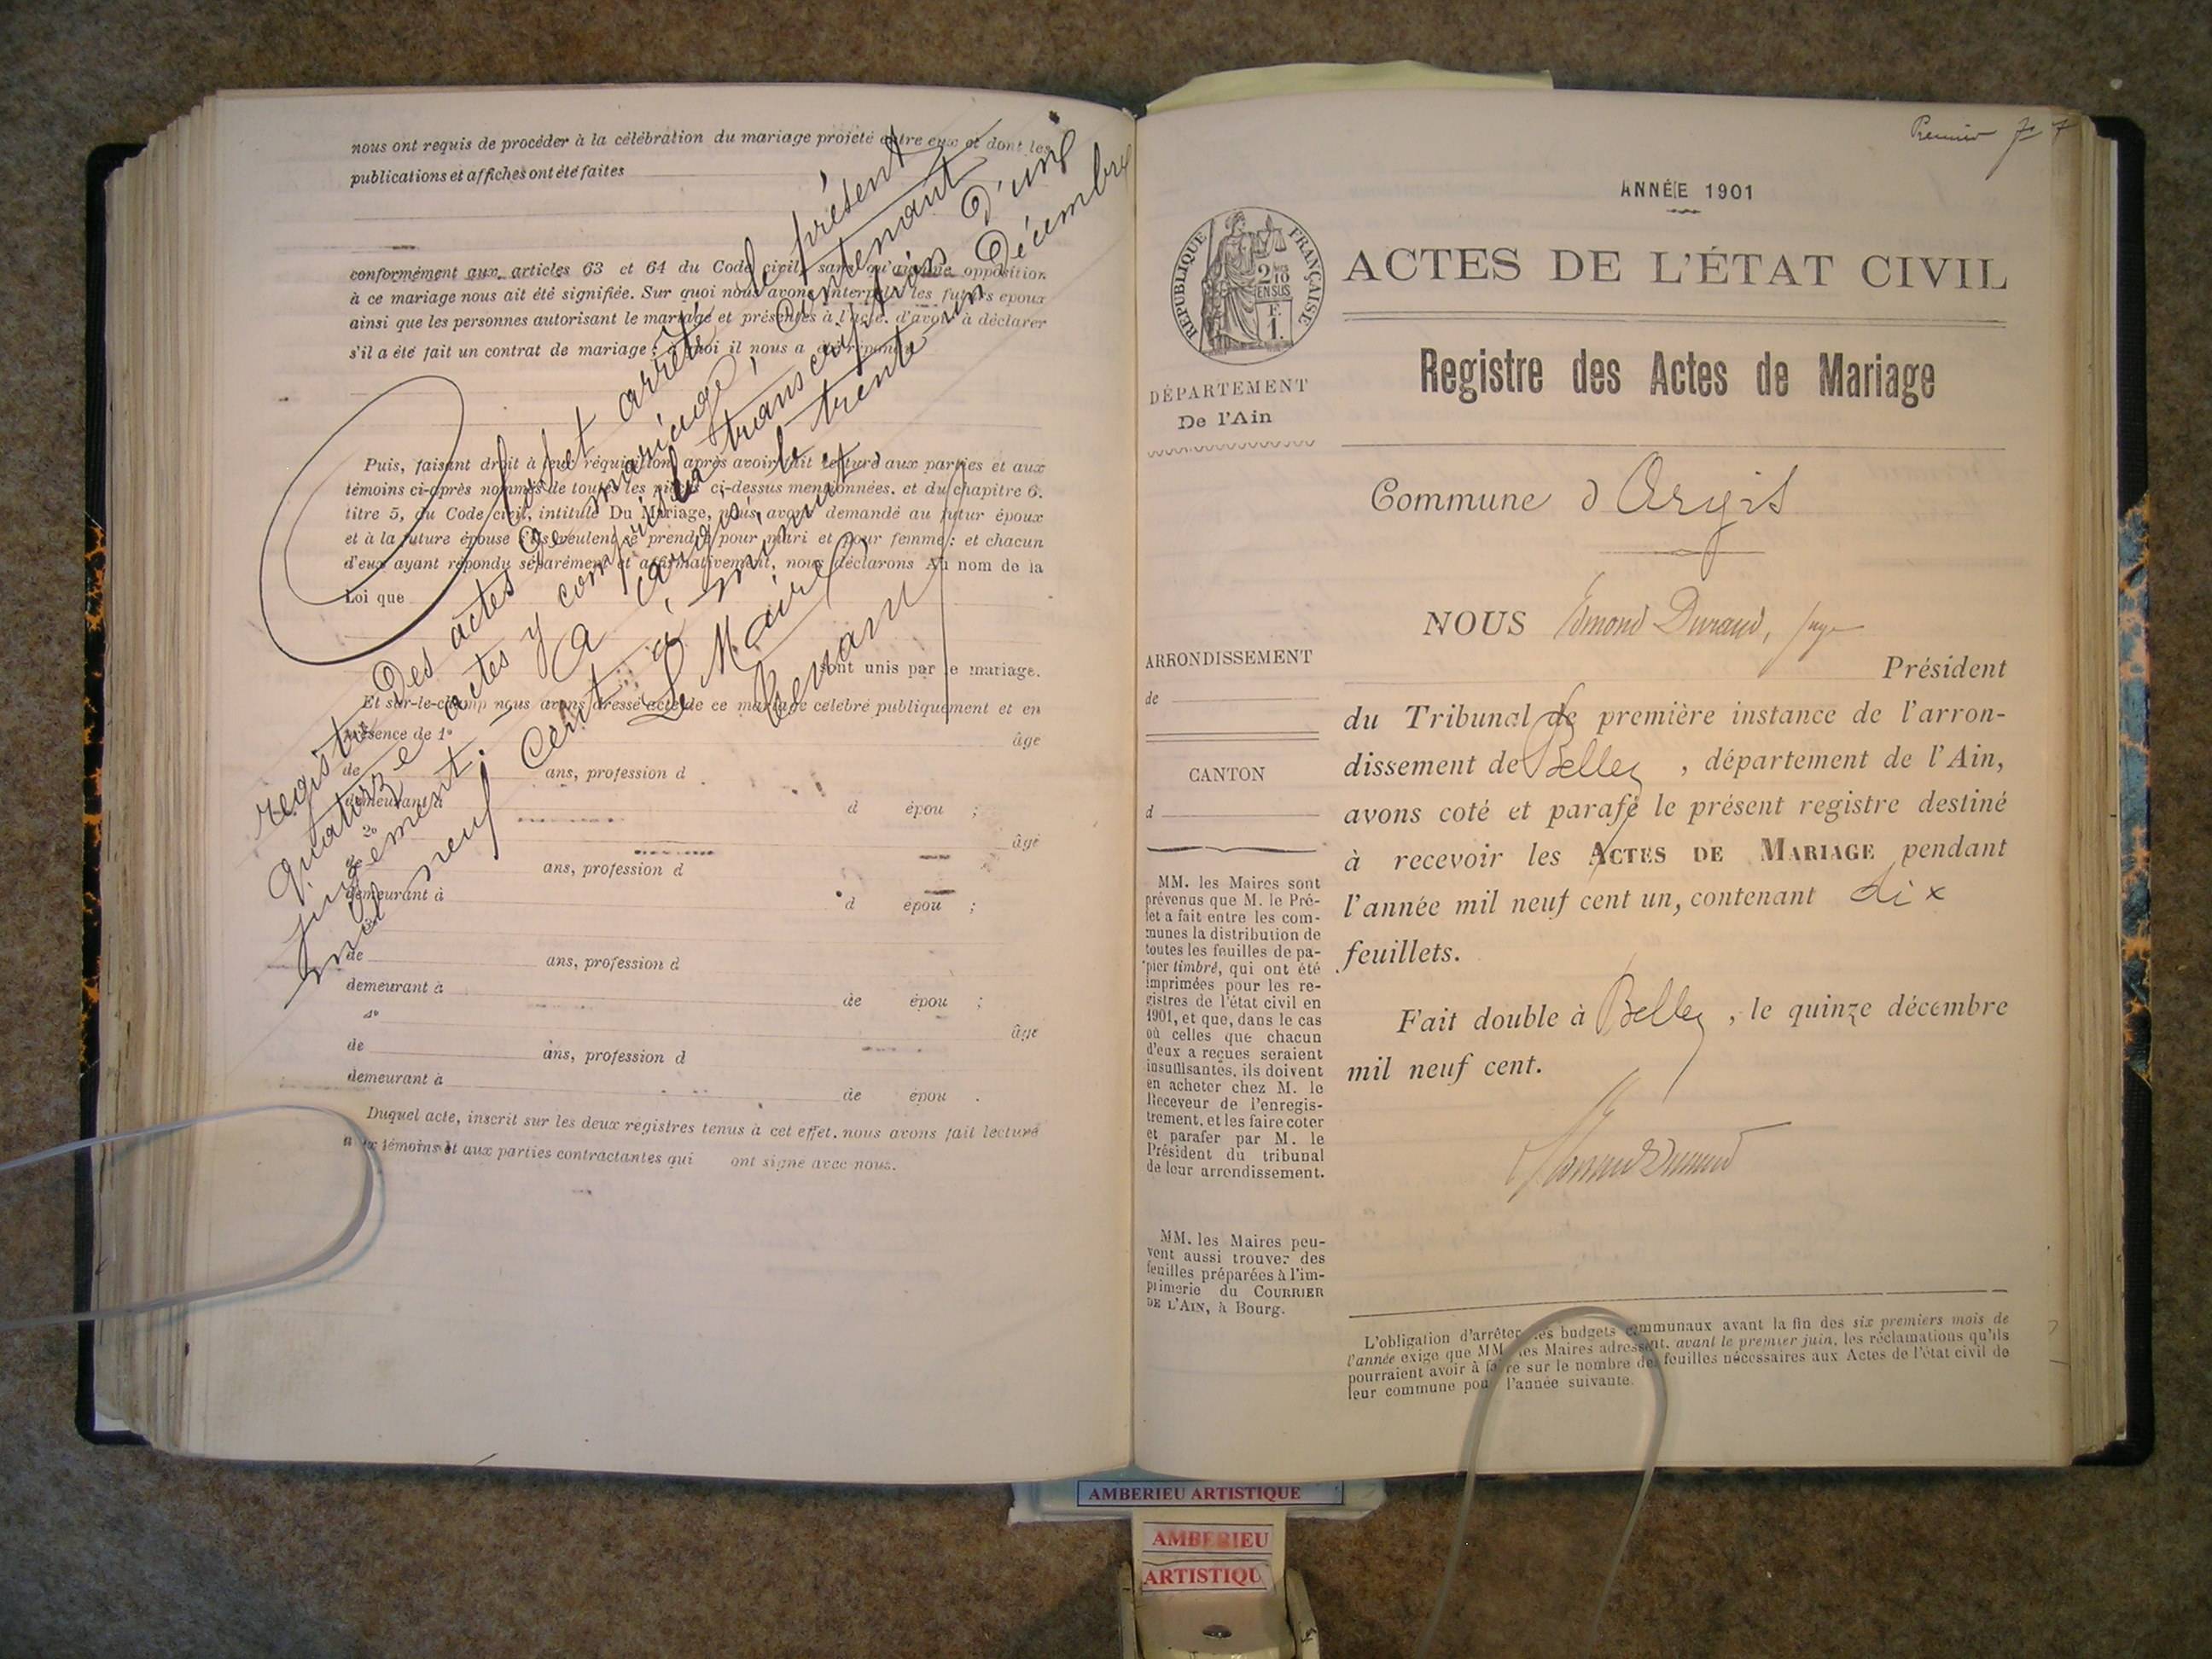 nous ont requis de procéder à la célébration du mariage projeté entre eux et dont les
publications et affiches ont été faites
conformément aux articles 63 et 64 du Code civil, sans qu'aucune opposition
à ce mariage nous ait été signifiée. Sur quoi nous avons interpellé les futurs époux
ainsi que les personnes autorisant le mariage et présentes à l'acte, d'avoir à déclarer
s'il a été fait un contrat de mariage ; à quoi il nous a été répondu
Puis, faisant droit à leur réquisition, après avoir fait lecture aux parties et aux
témoins ci-après nommés de toutes les pièces ci-dessus mentionnées, et du chapitre 6.
titre 5, du Code civil, intitulé Du Mariage, nous avons demandé au futur époux
et à la future épouse s'ils veulent se prendre pour mari et pour femme : et chacun
d'eux ayant répondu séparément et affirmativement, nous déclarons Au nom de la
Loi que
sont unis par le mariage.
Et sur-le-champ nous avons dressé acte de ce mariage célébré publiquement et en
présence de 1°
âgé
de ans, profession d
demeurant à d épou ;
2°
âgé
de ans, profession d
demeurant à d épou ;
de ans, profession d
demeurant à de épou ;
4°
âgé
de ans, profession d
demeurant à de épou .
Duquel acte, inscrit sur les deux registres tenus à cet effet, nous avons fait lecture
aux témoins et aux parties contractantes qui ont signé avec nous.
clos et arrêté le présent
registre des actes de mariage, contenant
quatorze actes y compris la transcription d'un
jugement. - A Argis, le trente un Décembre
mil neuf cent, à minuit.
Le Maire
Premier
ANNÉE 1901
ACTES DE L'ÉTAT CIVIL
RÉPUBLIQUE FRANÇAISE
2/10
EN SUS
F.
1.
DÉPARTEMENT
De l'Ain
Registre des Actes de Mariage
Commune d'Argis
NOUS Edmond Durand, juge
Président
du Tribunal de première instance de l'arron-
dissement de Belley , département de l'Ain,
avons coté et parafé le présent registre destiné
à recevoir les ACTES DE MARIAGE pendant
l'année mil neuf cent un, contenant dix
feuillets.
Fait double à Belley , le quinze décembre
mil neuf cent.
ARRONDISSEMENT
de
CANTON
d
MM. les Maires sont
prévenus que M. le Pré-
fet a fait entre les com-
munes la distribution de
toutes les feuilles de pa-
pier timbré, qui ont été
imprimées pour les re-
gistres de l'état civil en
1901, et que, dans le cas
où celles que chacun
d'eux a reçues seraient
insuffisantes, ils doivent
en acheter chez M. le
Receveur de l'enregis-
trement, et les faire coter
et parafer par M. le
Président du tribunal
de leur arrondissement.
MM. les Maires peu-
vent aussi trouver des
feuilles préparées à l'im-
primerie du COURRIER
DE L'AIN, à Bourg.
L'obligation d'arrêter les budgets communaux avant la fin des six premiers mois de
l'année exige que MM. les Maires adressent, avant le premier juin, les réclamations qu'ils
pourraient avoir à faire sur le nombre de feuilles nécessaires aux Actes de l'état civil de
leur commune pour l'année suivante.
AMBERIEU ARTISTIQUE
AMBERIEU
ARTISTIQU